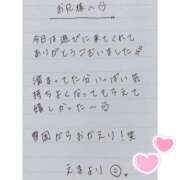 お兄様へ
今日は遊びに来てくれて
ありがとうございました!!
溜まってた分いっぱい気
持ちよくなってもらえて
嬉しかった〜
豊岡からおかえり!笑
えまより